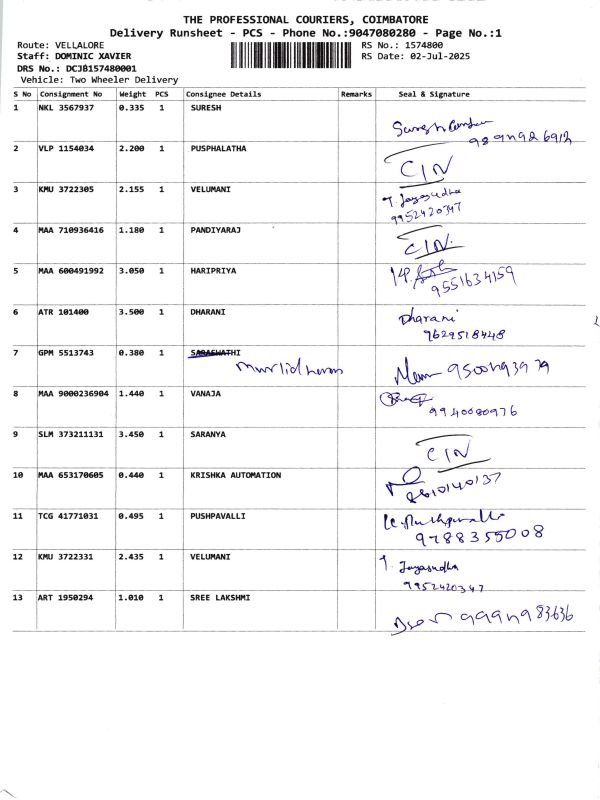 THE PROFESSIONAL COURIERS, COIMBATORE
Delivery Runsheet - PCS - Phone No.:9047080280 - Page No.:1
Route: VELLALORE
RS No.: 1574800
Staff: DOMINIC XAVIER
RS Date: 02-Jul-2025
DRS No.: DCJB157480001
Vehicle: Two Wheeler Delivery
S No Consignment No Weight PCS Consignee Details Remarks Seal & Signature
1 NKL 3567937 0.335 1 SURESH
2 VLP 1154034 2.200 1 PUSPHALATHA
CIN
3 KMU 3722305 2.155 1 VELUMANI
T. Jayasudha
9952420347
4 MAA 710936416 1.180 1 PANDIYARAJ
CIN
5 MAA 600491992 3.050 1 HARIPRIYA
9551634159
6 ATR 101400 3.500 1 DHARANI
Dharani
9629518448
7 GPM 5513743 0.380 1 SARASWATHI
8 MAA 9000236904 1.440 1 VANAJA
9940080976
9 SLM 373211131 3.450 1 SARANYA
CIN
10 MAA 653170605 0.440 1 KRISHKA AUTOMATION
8610140137
11 TCG 41771031 0.495 1 PUSHPAVALLI
9788355008
12 KMU 3722331 2.435 1 VELUMANI
T. Jayasudha
9952420347
13 ART 1950294 1.010 1 SREE LAKSHMI